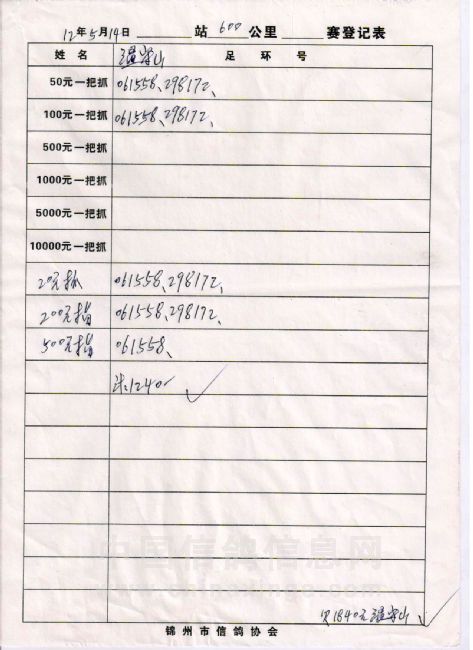 12年5月14日 站 600公里 赛登记表
姓名 温守山 足环号
50元一把抓 061558、298172、
100元一把抓 061558、298172、
500元一把抓
1000元一把抓
5000元一把抓
10000元一把抓
20元抓 061558、298172、
200元指 061558、298172、
500元指 061558、
计:1240-
中国信鸽信息网
www.chinaxinge.com
欠1840元
锦州市信鸽协会